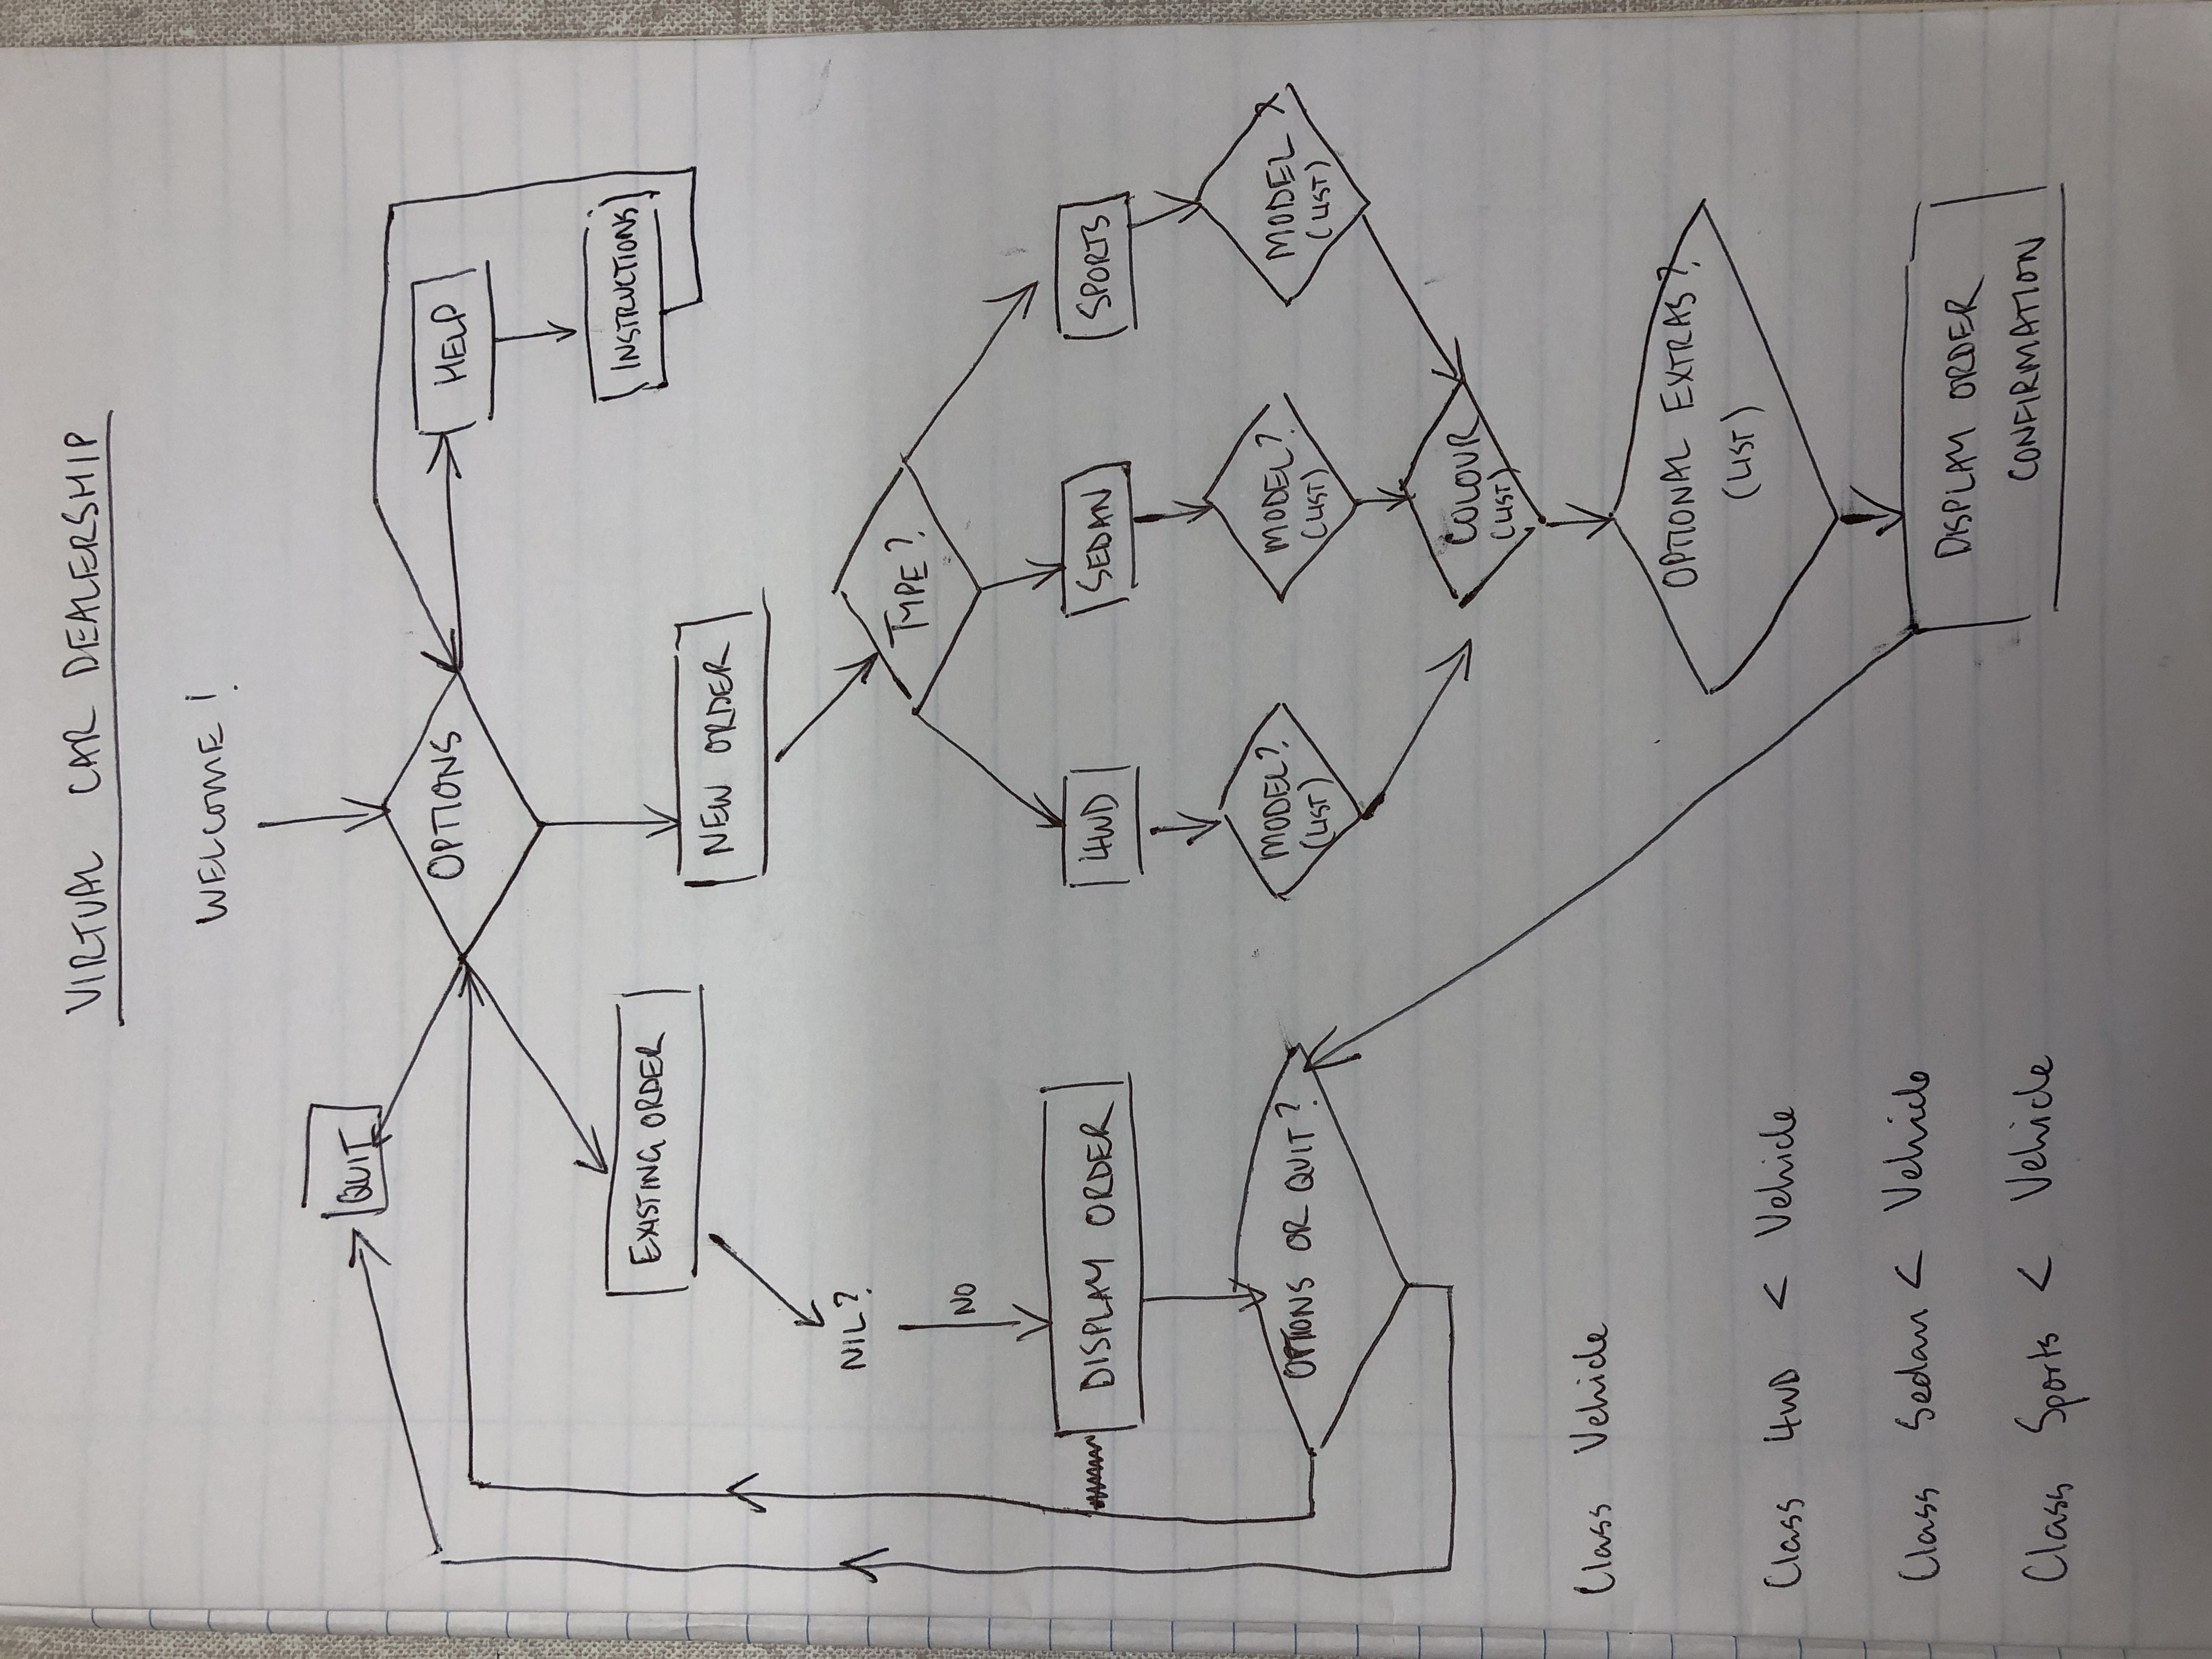 VIRTUAL CAR DEALERSHIP
WELCOME!
QUIT
OPTIONS
HELP
INSTRUCTIONS
EXISTING ORDER
NEW ORDER
NIL?
TYPE?
NO
DISPLAY ORDER
4WD
SEDAN
SPORTS
OPTIONS OR QUIT?
MODEL?
(LIST)
MODEL?
(LIST)
MODEL?
(LIST)
COLOUR
(LIST)
OPTIONAL EXTRAS?
(LIST)
DISPLAY ORDER
CONFIRMATION
Class Vehicle
Class 4WD < Vehicle
Class Sedan < Vehicle
Class Sports < Vehicle